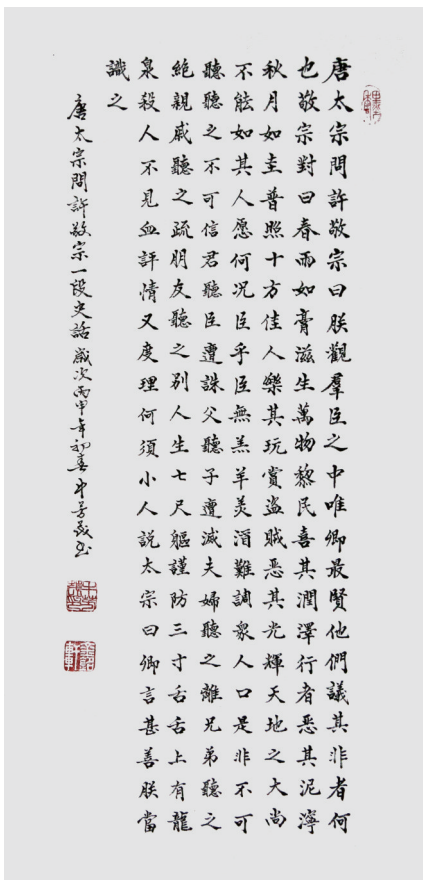 唐太宗問許敬宗曰朕觀羣臣之中唯卿最賢他們議其非者何
也敬宗對曰春雨如膏滋生萬物黎民喜其潤澤行者惡其泥濘
秋月如圭普照十方佳人樂其玩賞盜賊惡其光輝天地之大尚
不能如其人愿何況臣乎臣無羔羊美酒難調衆人口是非不可
聽聽之不可信君聽臣遭誅父聽子遭滅夫婦聽之離兄弟聽之
絕親戚聽之疏朋友聽之別人生七尺軀謹防三寸舌舌上有龍
泉殺人不見血評情又度理何須小人說太宗曰卿言甚善朕當
識之
唐太宗問許敬宗一段史話歲次丙申年初春